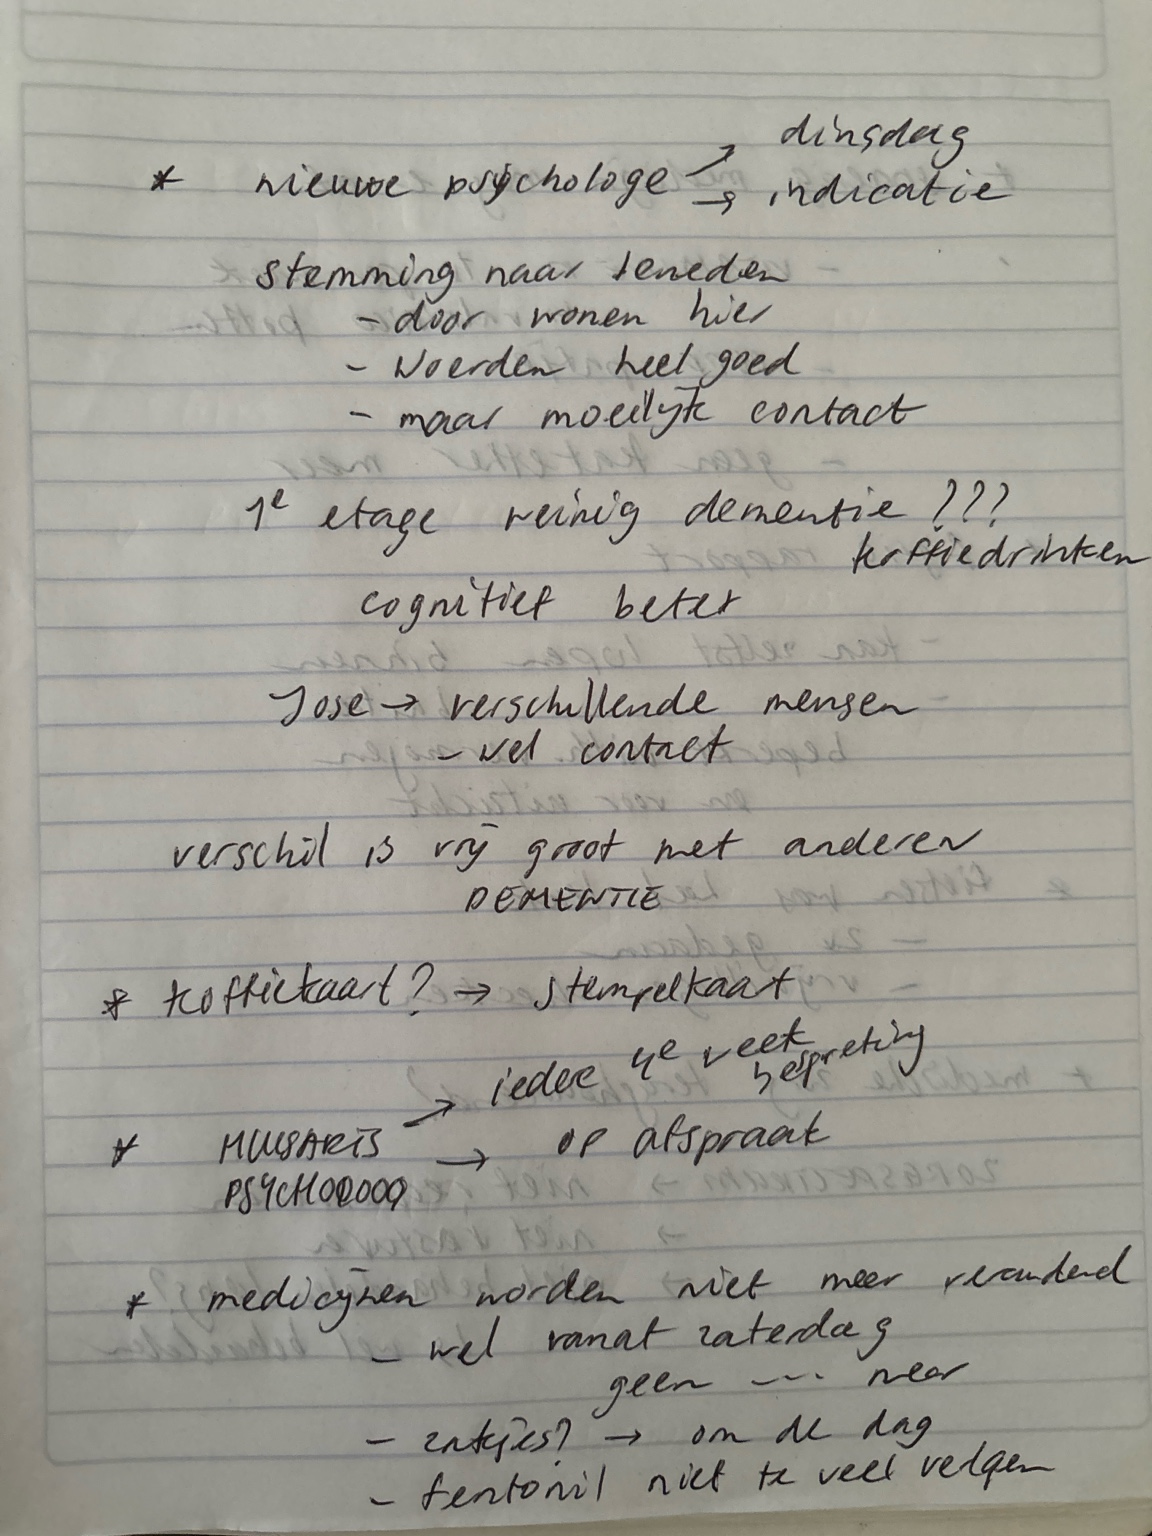 dinsdag
* nieuwe psychologe → → indicatie
stemming naar beneden
- door wonen hier
- Woerden heel goed
- maar moeilijk contact
1e etage weinig dementie ???
koffiedrinken
cognitief beter
Jose → verschillende mensen
- wel contact
verschil is vrij groot met anderen
DEMENTIE
* koffiekaart? → stempelkaart
→ iedere 4e week
bespreking
* HUISARTS → op afspraak
* medicijnen worden niet meer veranderd
- wel vanaf zaterdag
geen --- meer
- zakjes? → om de dag
- niet te veel